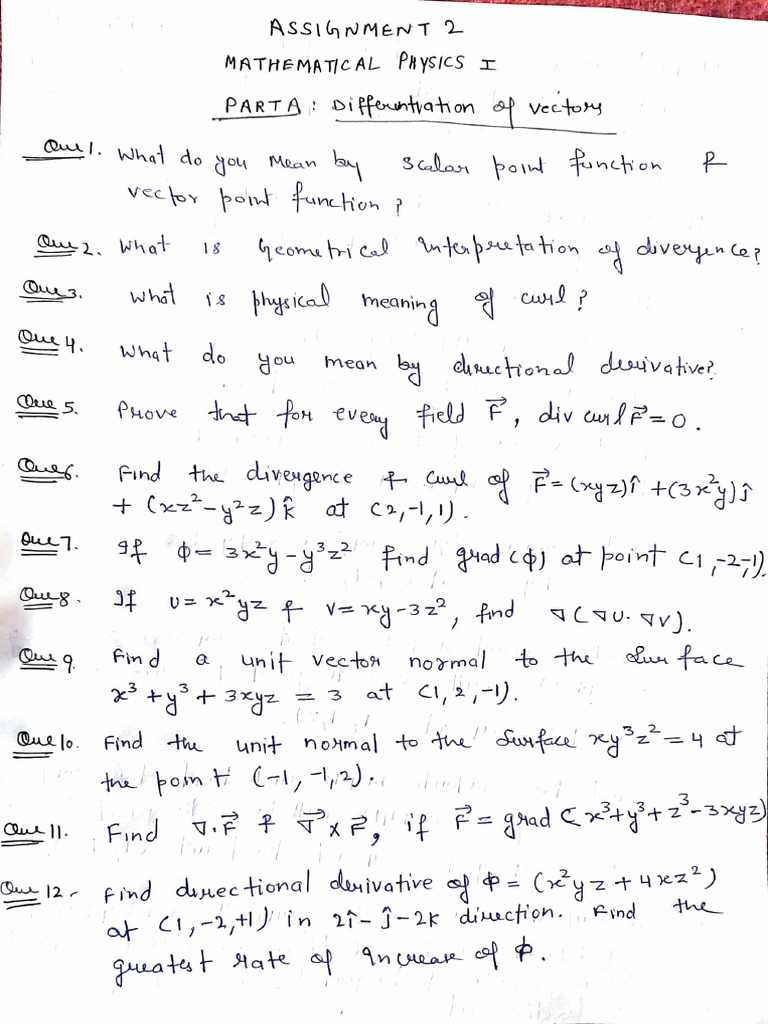 ASSIGNMENT 2
MATHEMATICAL PHYSICS I
PART A : Differentiation of vectors
Que 1. What do you mean by scalar point function &
vector point function ?
Que 2. What is Geometrical interpretation of divergence?
Que 3. What is physical meaning of curl ?
Que 4. What do you mean by directional derivative?
Que 5. Prove that for every field F⃗, div curl F⃗ = 0.
Que 6. Find the divergence & curl of F⃗ = (xyz)î + (3x²y)ĵ
+ (xz² - y²z) k̂ at (2,-1,1).
Que 7. If ϕ = 3x²y - y³z² find grad(ϕ) at point (1,-2,-1).
Que 8. If U = x²yz & V = xy - 3z², find ∇(∇U·∇V).
Que 9. Find a unit vector normal to the surface
x³ + y³ + 3xyz = 3 at (1,2,-1).
Que 10. Find the unit normal to the surface xy³z² = 4 at
the point (-1,-1,2).
Que 11. Find ∇.F⃗ & ∇⃗ × F⃗, if F⃗ = grad (x³+y³+z³-3xyz)
Que 12. Find directional derivative of ϕ = (x²yz + 4xz²)
at (1,-2,+1) in 2î - ĵ - 2k direction. Find the
greatest rate of increase of ϕ.